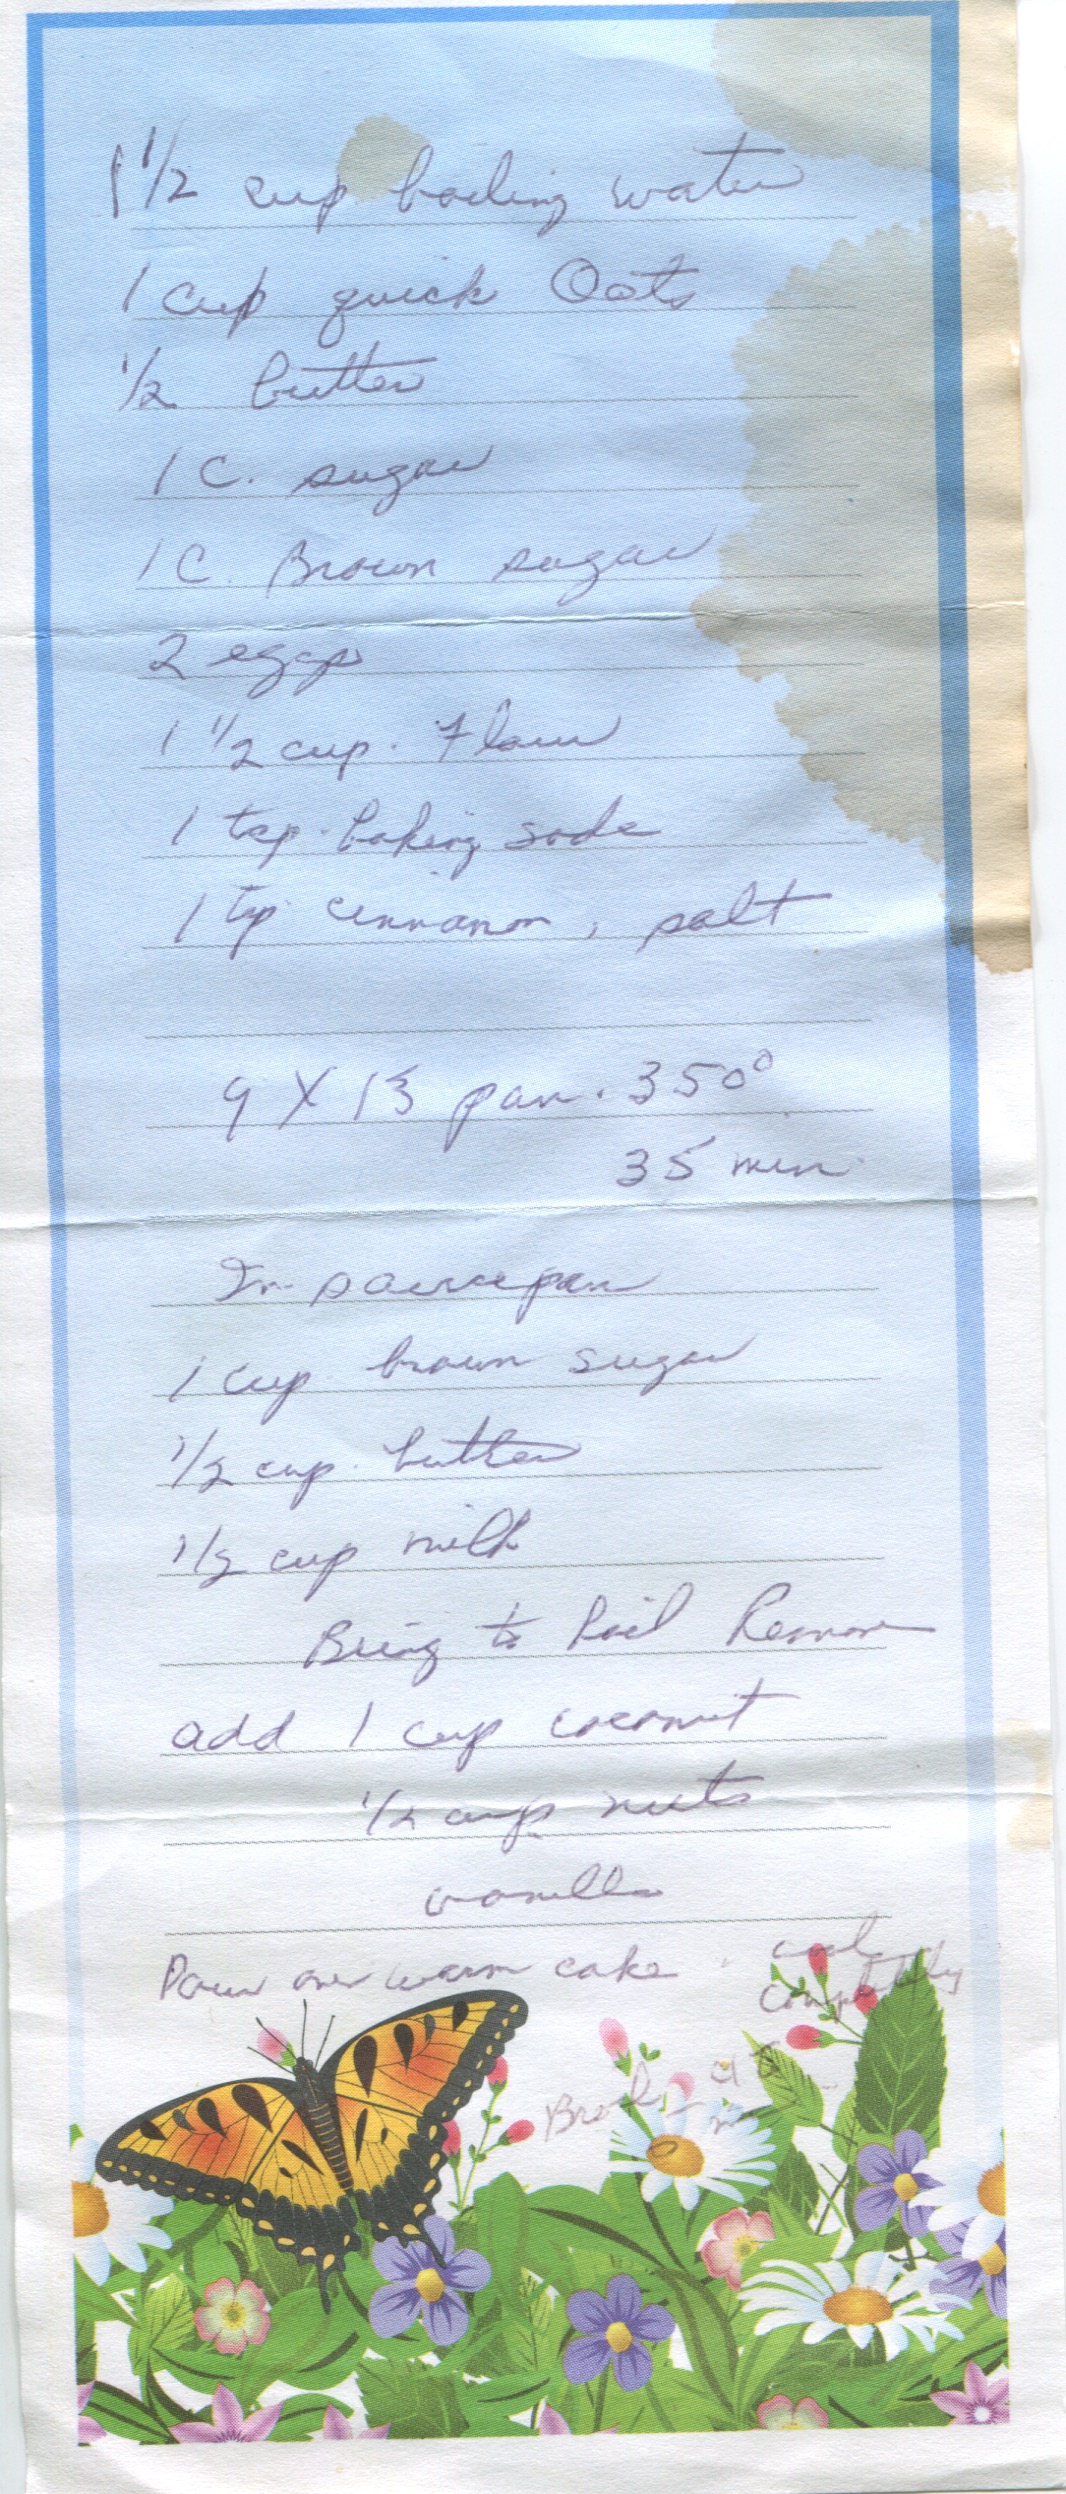 1 1/2 cup boiling water
1 cup quick Oats
1/2 butter
1 C. sugar
1 C. Brown sugar
2 eggs
1 1/2 cup. Flour
1 tsp. baking soda
1 tsp cinnamon, salt
9 X 13 pan. 350°
35 min.
In saucepan
1 cup brown sugar
1/2 cup butter
1/2 cup milk
Bring to boil Remove
add 1 cup coconut
1/2 cup nuts
vanilla
Pour over warm cake. cool
completely